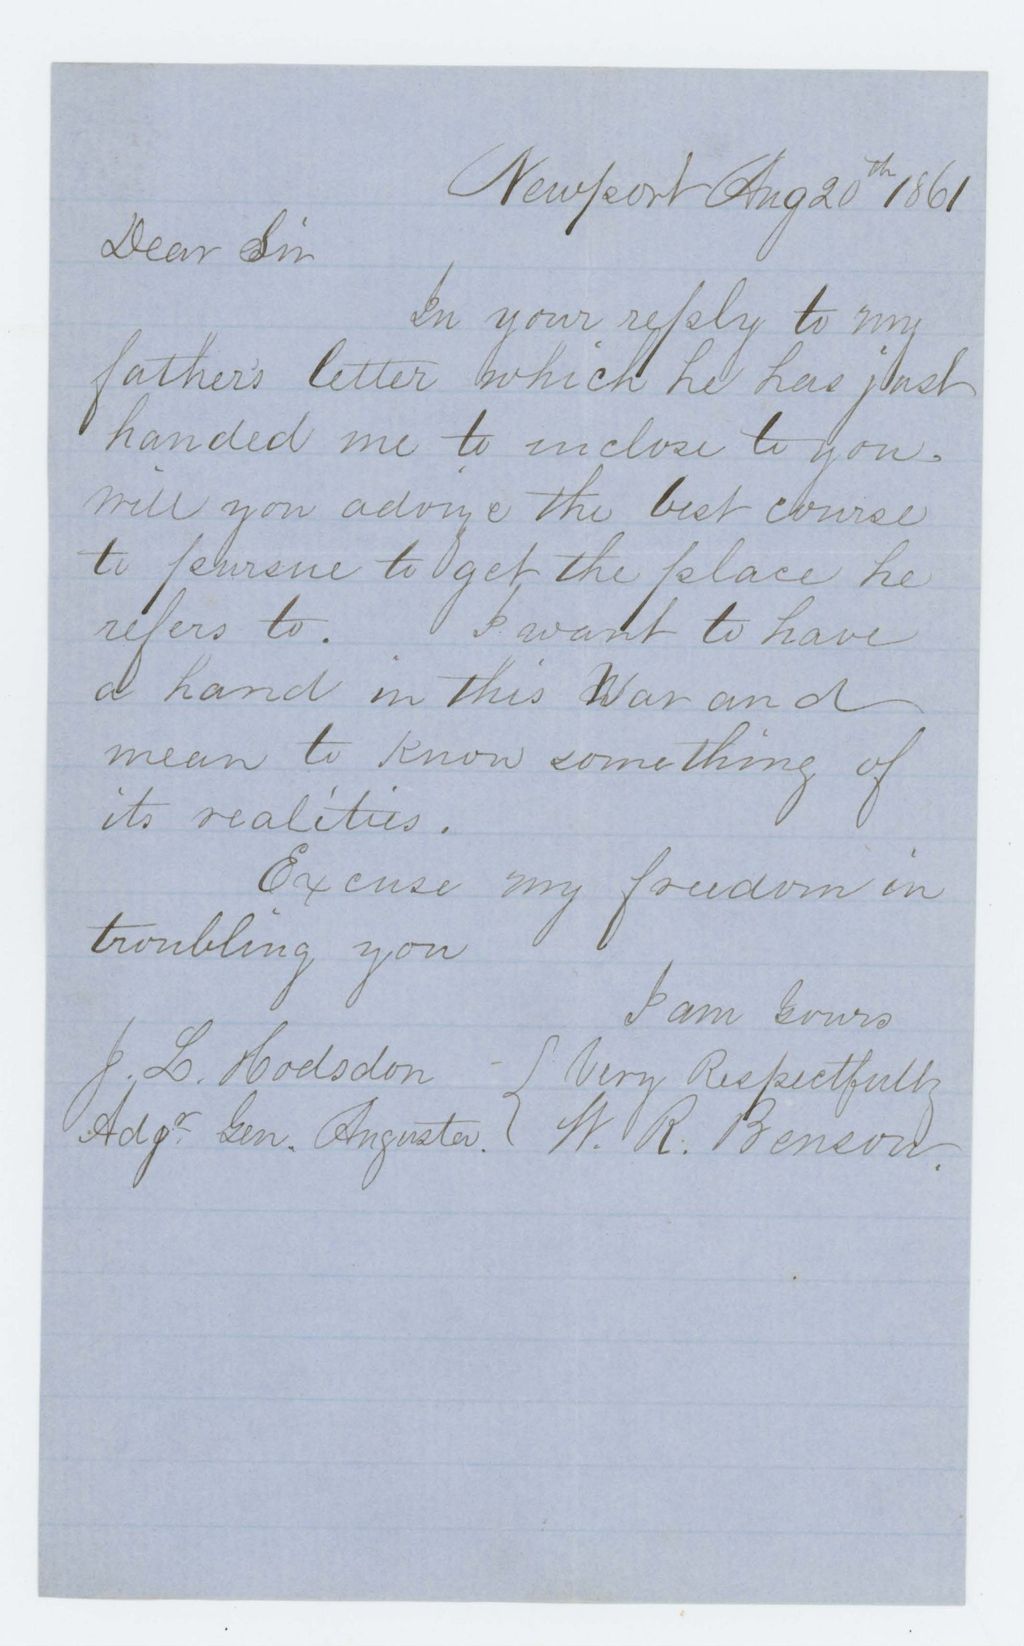 Newport Aug 20th 1861
Dear Sir
In your reply to my
father's letter which he has just
handed me to inclose to you.
will you advize the best course
to pursue to get the place he
refers to. I want to have
a hand in this War and
mean to know something of
its realities.
Excuse my freedom in
troubling you
I am yours
J. L. Hodsdon { Very Respectfully
Adgr. Gen. Augusta. { W. R. Benson.